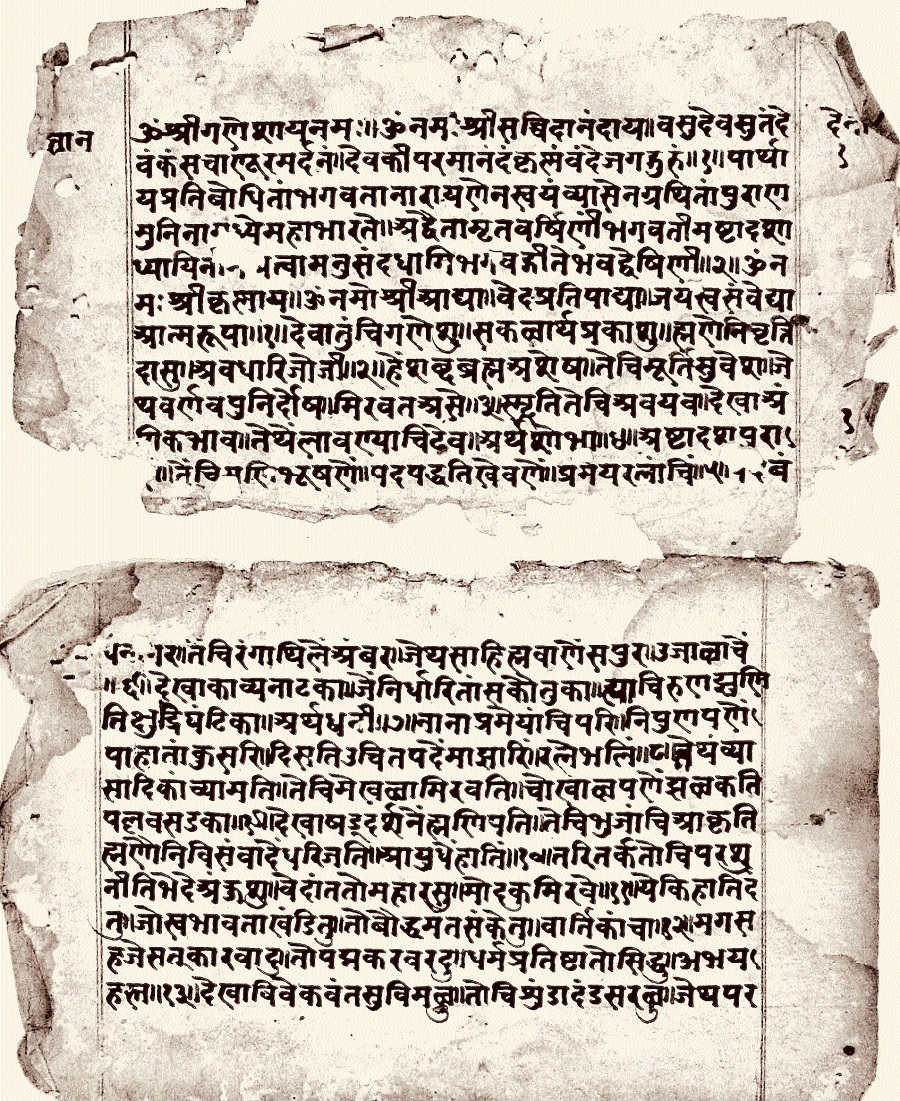 ज्ञान
ॐ श्रीगणेशायनमः॥ॐ नमः श्रीसच्चिदानंदाय॥वसुदेवसुतंदे
वंकंसचाणूरमर्दनं॥देवकीपरमानंदंकृष्णंवंदेजगद्गुरुं॥१॥पार्था
यप्रतिबोधितांभगवतानारायणेनस्वयंव्यासेनग्रथितांपुराण
मुनिनामध्येमहाभारते॥अद्वैतामृतवर्षिणींभगवतीमष्टादशा
ध्यायिनीं त्वामनुसंदधामिभगवद्गीतेभवद्वेषिणीं॥२॥ॐ न
मः श्रीकृष्णाय॥ॐ नमोश्रीआद्या॥वेदप्रतिपाद्या॥जयस्वसंवेद्या
आत्मरूपा॥१॥देवातुंचिगणेशु॥सकळार्थप्रकाशु॥ह्मणेनिवृत्ति
दासु॥अवधारिजोजी॥२॥हेंशब्दब्रह्मअशेषा॥तेचिमूर्तिसुवेश॥जे
थवर्णवपुनिर्दोष॥मिरवतअसे॥३॥स्मृतितेचिअवयव॥देखाअं
गिकभाव॥तेथेंलावण्याचिठेव॥अर्थशोभा॥४॥अष्टादशपुरा
॥तेंचि भूषणें॥पदपद्धतिखेवणें॥प्रमेयरत्नांचिं॥५॥ बं
॥तेंचिरंगाथिलेंअंबर॥जेथसाहित्यवाणेंसपुर॥उजाळाचें
॥६॥देखाकाव्यनाटका॥जेंनिर्धारितांसकौतुका॥त्याचिरुणझुणि
तिक्षुद्रघंटिका॥अर्थधनी॥७॥नानाप्रमेयाचिपरि॥निपुणपणें
पाहातांकुसरि॥दिसतिउचितपदेंमाझारि॥रत्नेंभलिं॥८॥तेथेंव्या
सादिकांच्यामति॥तेचिमेखळामिरवति॥चोखाळपणेंझळकति
पल्लवसडका॥९॥देखाषड्दर्शनेंह्मणिपति॥तेचिभुजांचिआकृति
ह्मणौनिविसंवादेंधरिजति॥आयुधेंहातिं॥१०॥तरितर्कतोचिपरशु
नीतिभेदेंअंकुशु॥वेदांततोमहारसु॥मोदकमिरवे॥११॥येकिहातिंदं
तु॥जोस्वभावताखंडितु॥तोबौद्धमतसंकेतु॥वार्तिकांचा॥१२॥मगस
हजेंसतकारवादु॥तोपद्मकरवरदु॥धर्मप्रतिष्टातोसिद्धु॥अभय
हस्तु॥१३॥देखाविवेकवंतसुविमळु॥तोचिशुंडादंडसरळु॥जेथपर